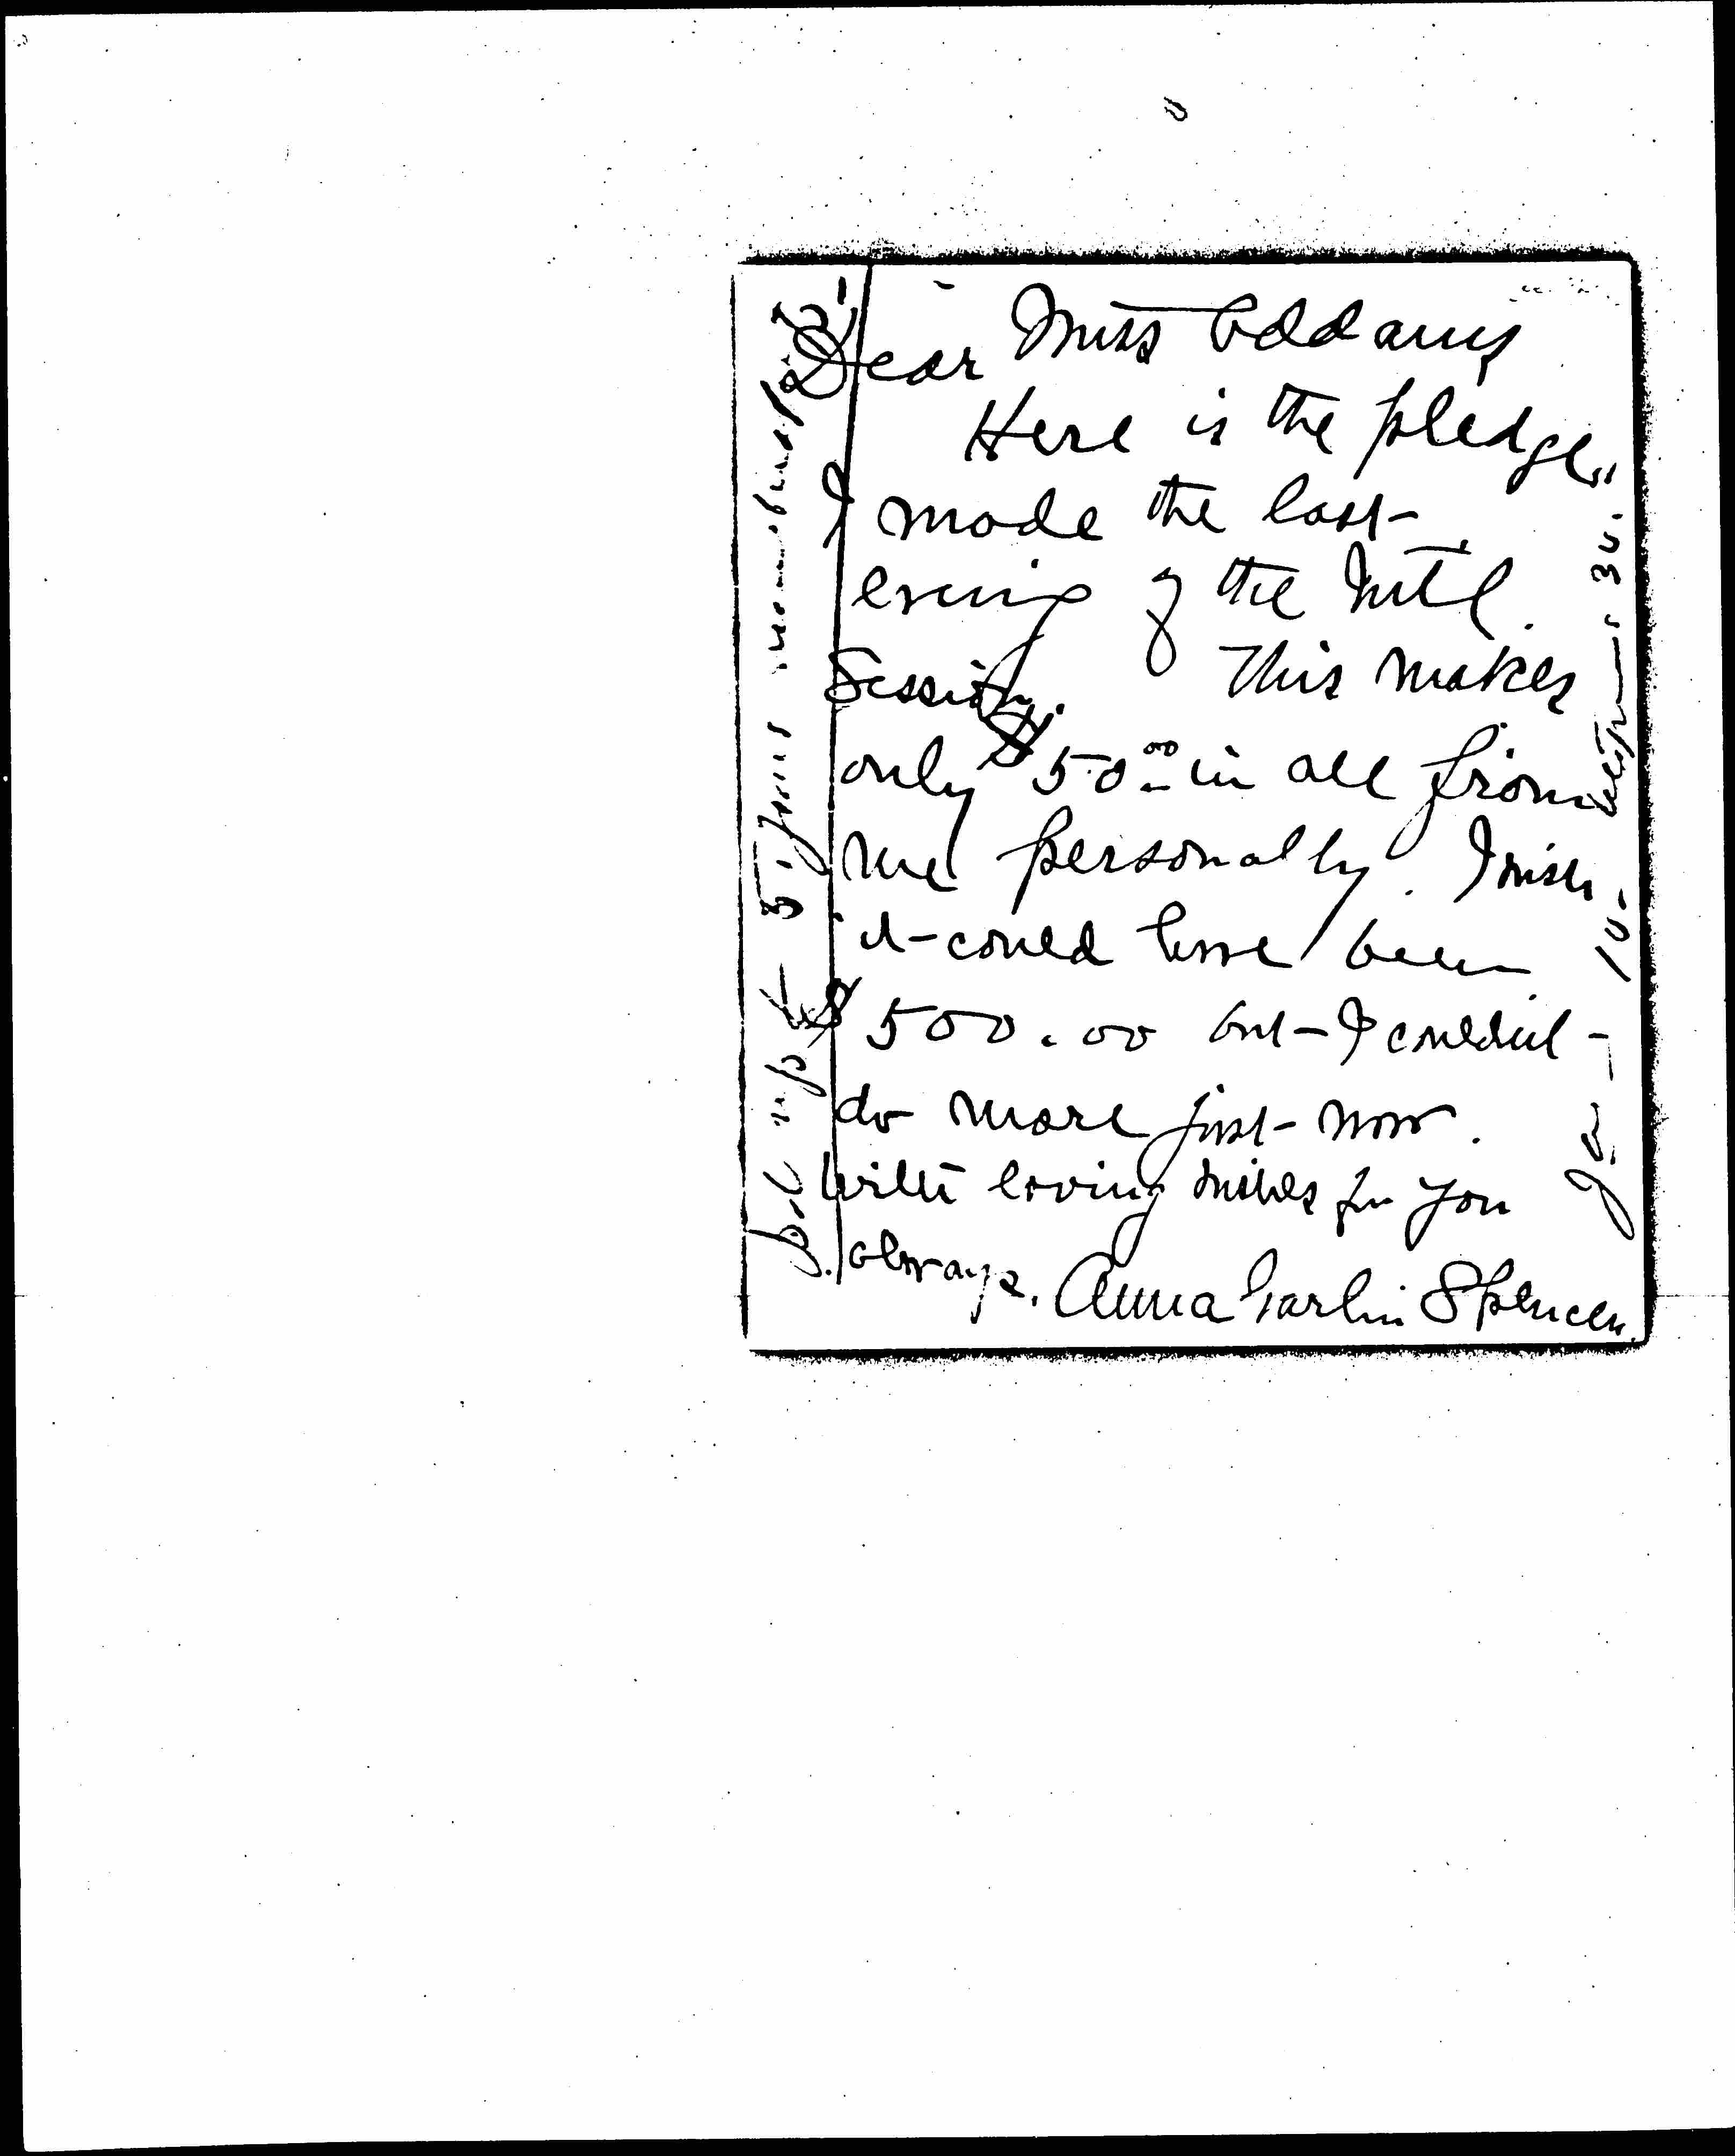 Dear Miss Addams
Here is the pledge
I made the last
evening of the Intl.
Session. This makes
only $50.00 in all from
me personally. I wish
it could have been
$500.00 but I couldn't
do more just now.
With loving wishes for you
always. Anna Garlin Spencer.
5. yrs membership
10- 30.